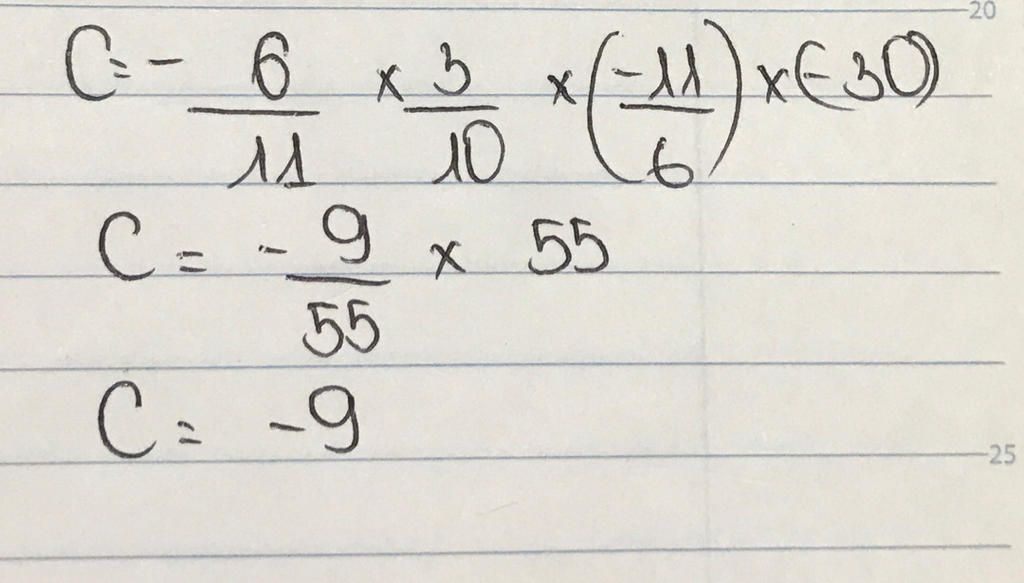 20
C = - 6/11 × 3/10 × (-11/6) × (-30)
C = - 9/55 × 55
C = -9
25